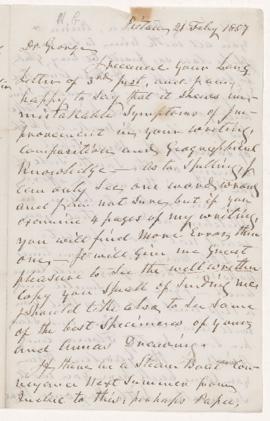 N. S.
Pictou 21 July 1857
Dr George
I received your long
letter of 3rd inst, and am
happy to say that it shews un-
mistakeable symptoms of im-
provement in your writing,
composition and Geographical
Knowledge — As to Spelling, I
can only see one word wrong
and I'm not sure, but if you
examine 4 pages of my writing
you will find more Errors than
one — It will give me great
pleasure to see the well written
Copy you speak of sending me
I should like also to see some
of the best Specimens of yours
and Annas Drawing.
If there is a Steam Boat con-
veyance Next Summer from
Quebec to this, perhaps Papa,